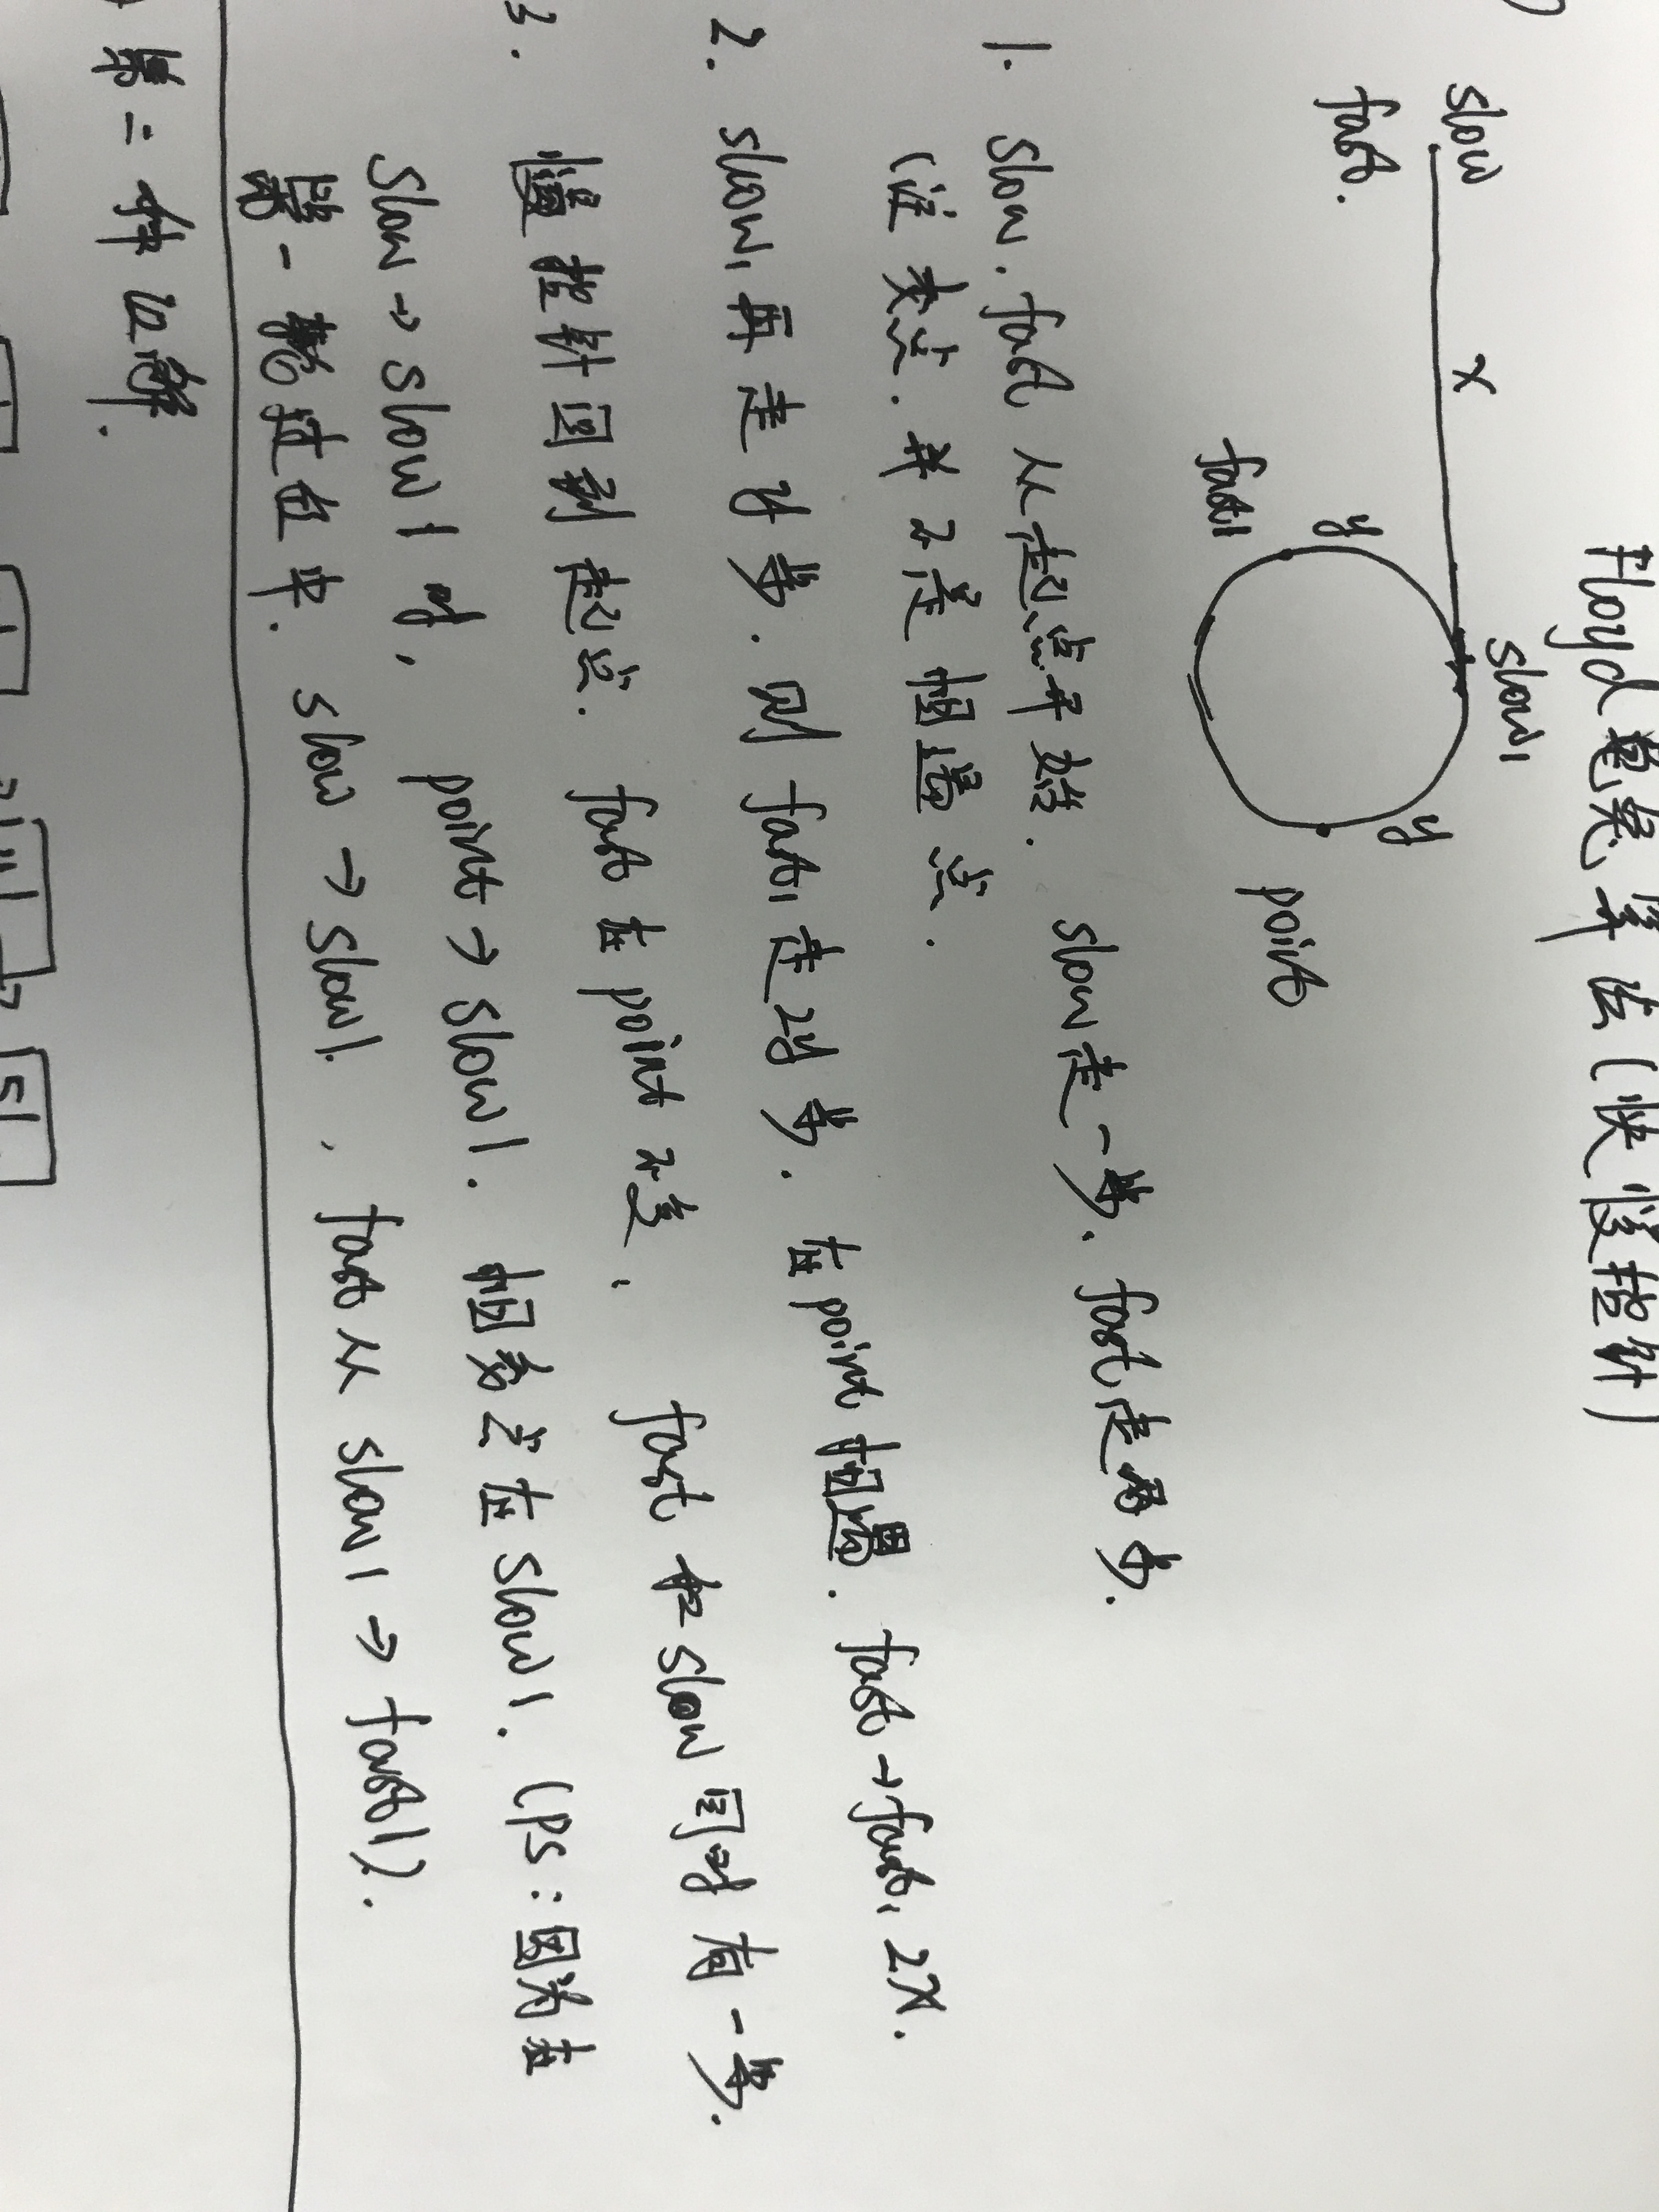 Floyd 龟兔算法(快慢指针)
slow
x
slow1
fast.
y
y
fast1
point
1. slow. fast 从起点开始. slow走一步. fast走两步.
(注意点. 并不是相遇点.
fast→fast1 2x.
2. slow1再走y步. 则fast1走2y步. 在point相遇.
3. 慢指针回到起点. fast在point不变, fast和slow同时有一步.
slow→slow1时, point→slow1. 相务点在slow1. (ps:因为在
第一轮过程中. slow→slow1. , fast从slow1→fast1).
第二种理解.
5